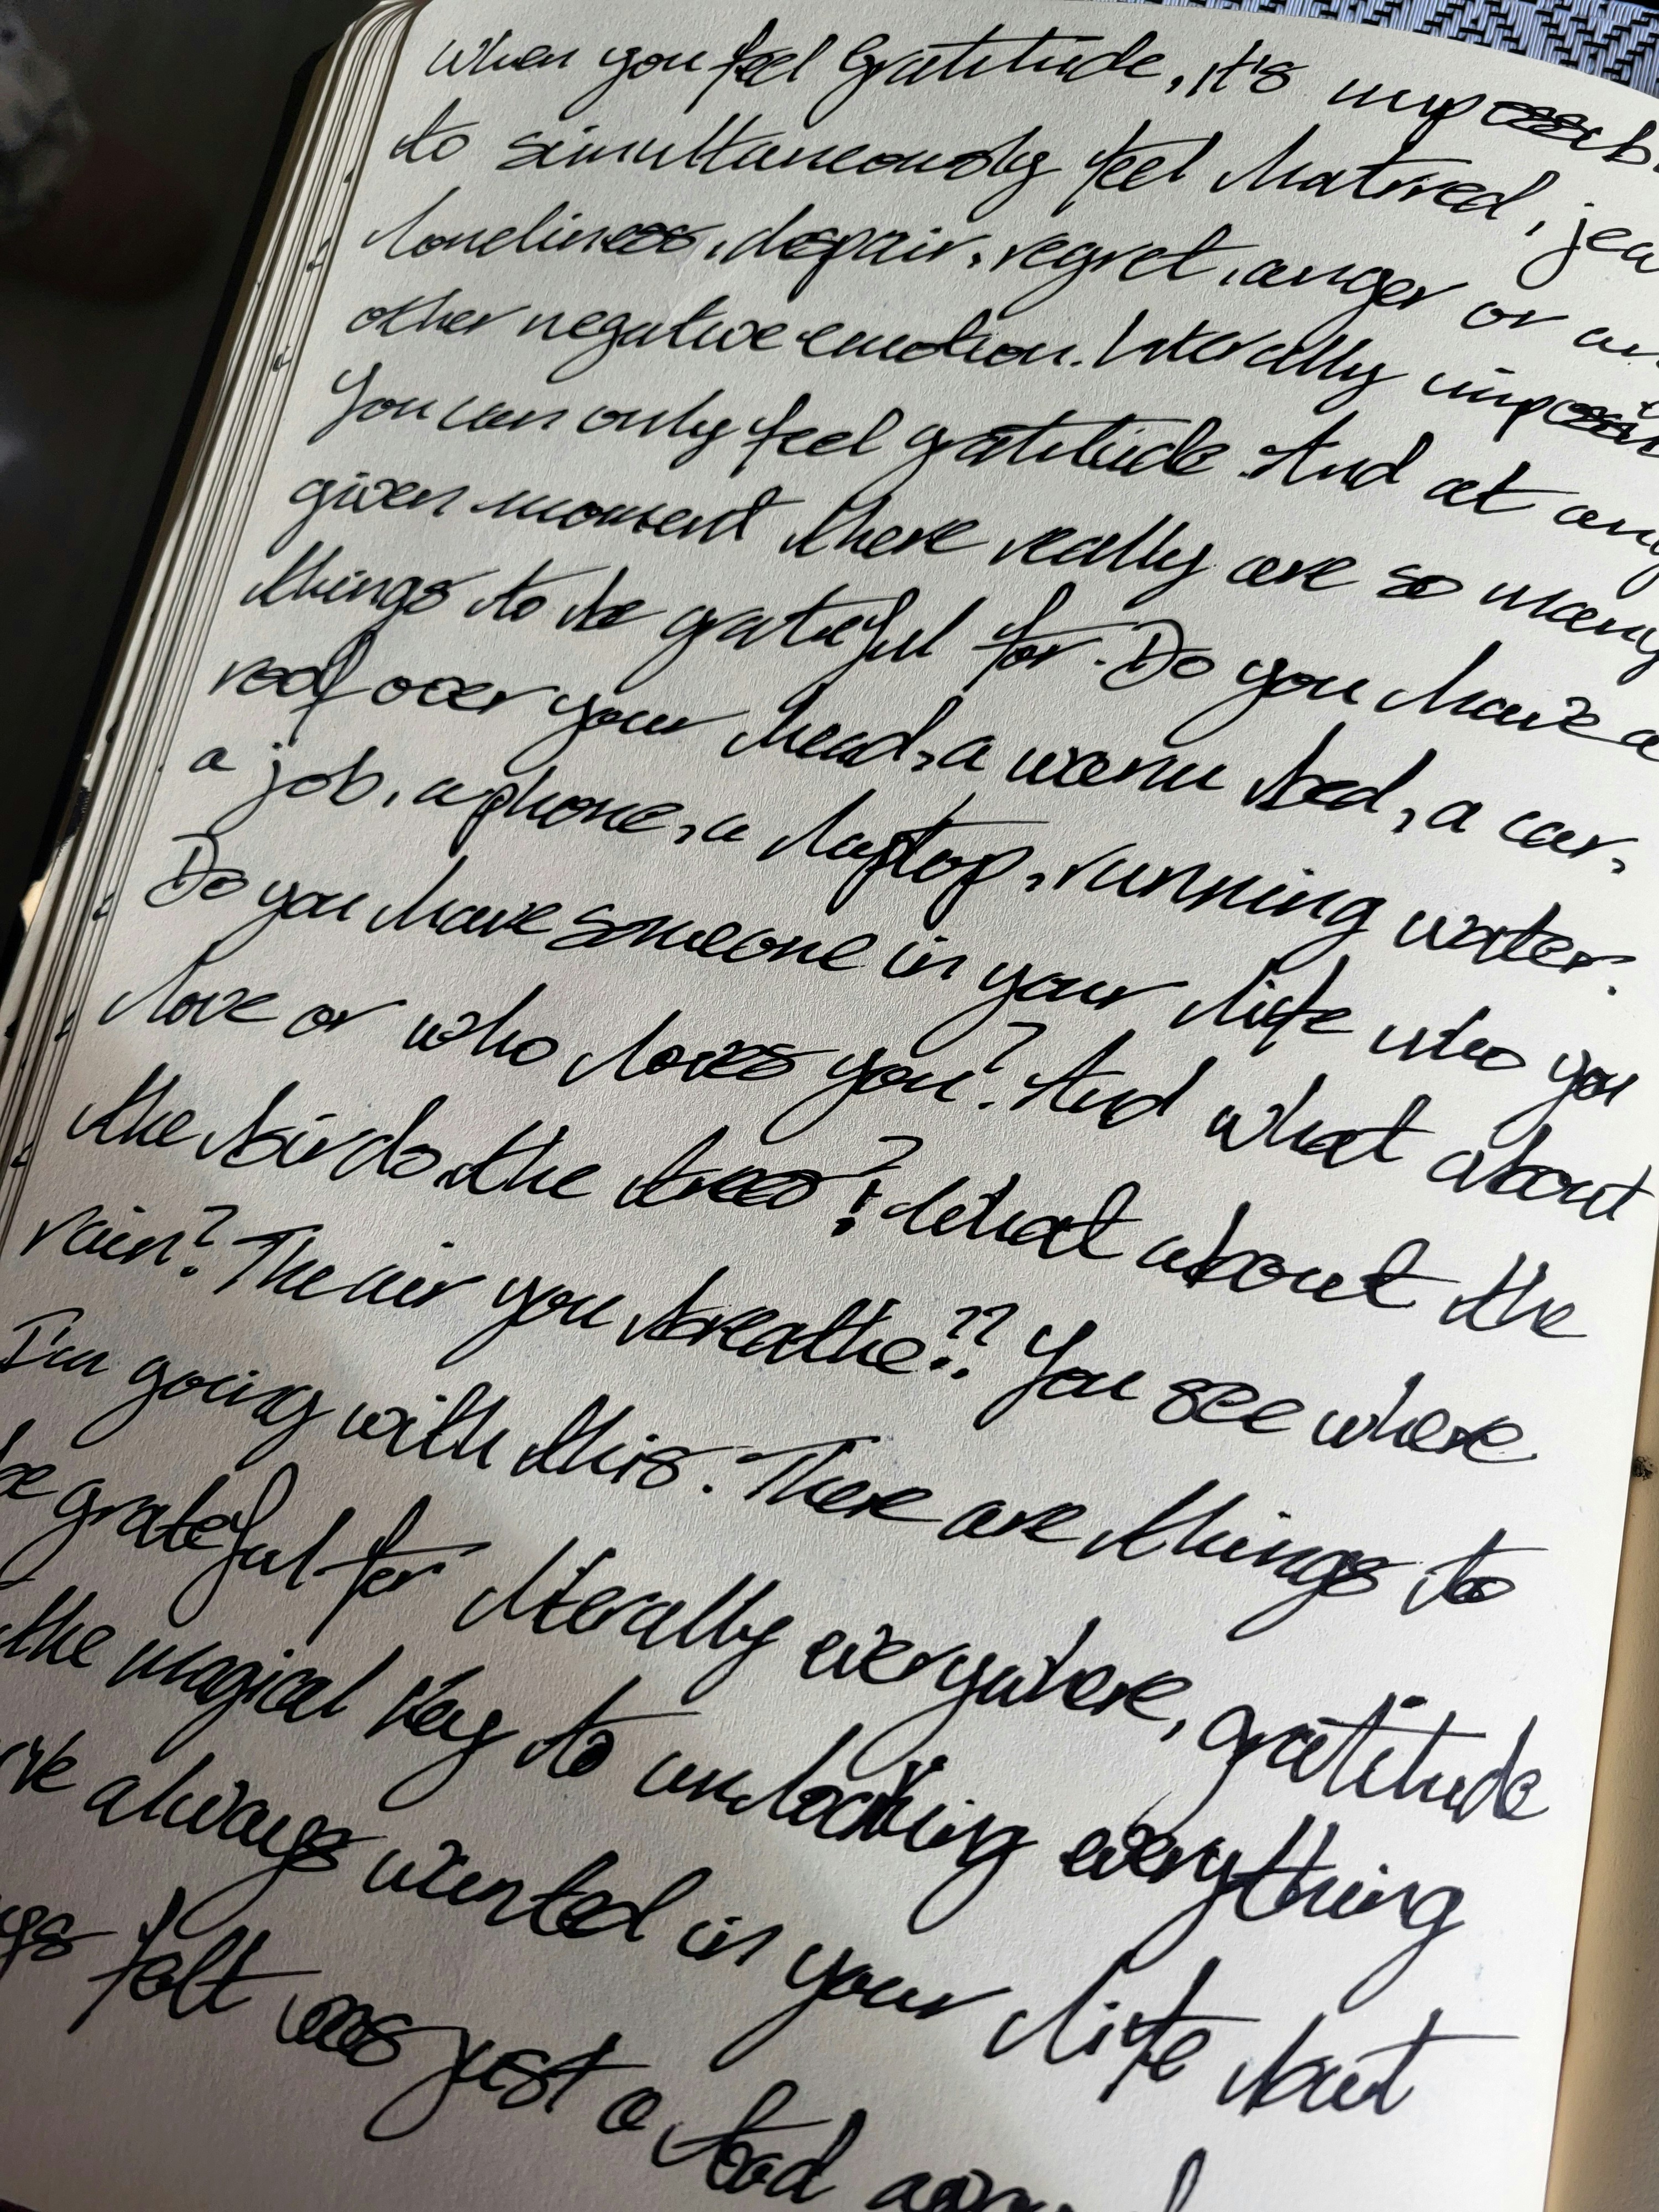 When you feel Gratitude, it's
to simultaneously feel hatred,
loneliness, despair, regret, anger or
other negative emotion. Literally
You can only feel gratitude. And at any
given moment there really are so many
things to be grateful for. Do you have a
roof over your head, a warm bed, a car,
a job, a phone, a laptop, running water?
Do you have someone in your life who you
love or who loves you? And what about
the birds, the trees? What about the
rain? The air you breathe?? You see where
I'm going with this. There are things to
be grateful for literally everywhere, gratitude
the magical key to unlocking everything
always wanted in your life but
felt was just a tad